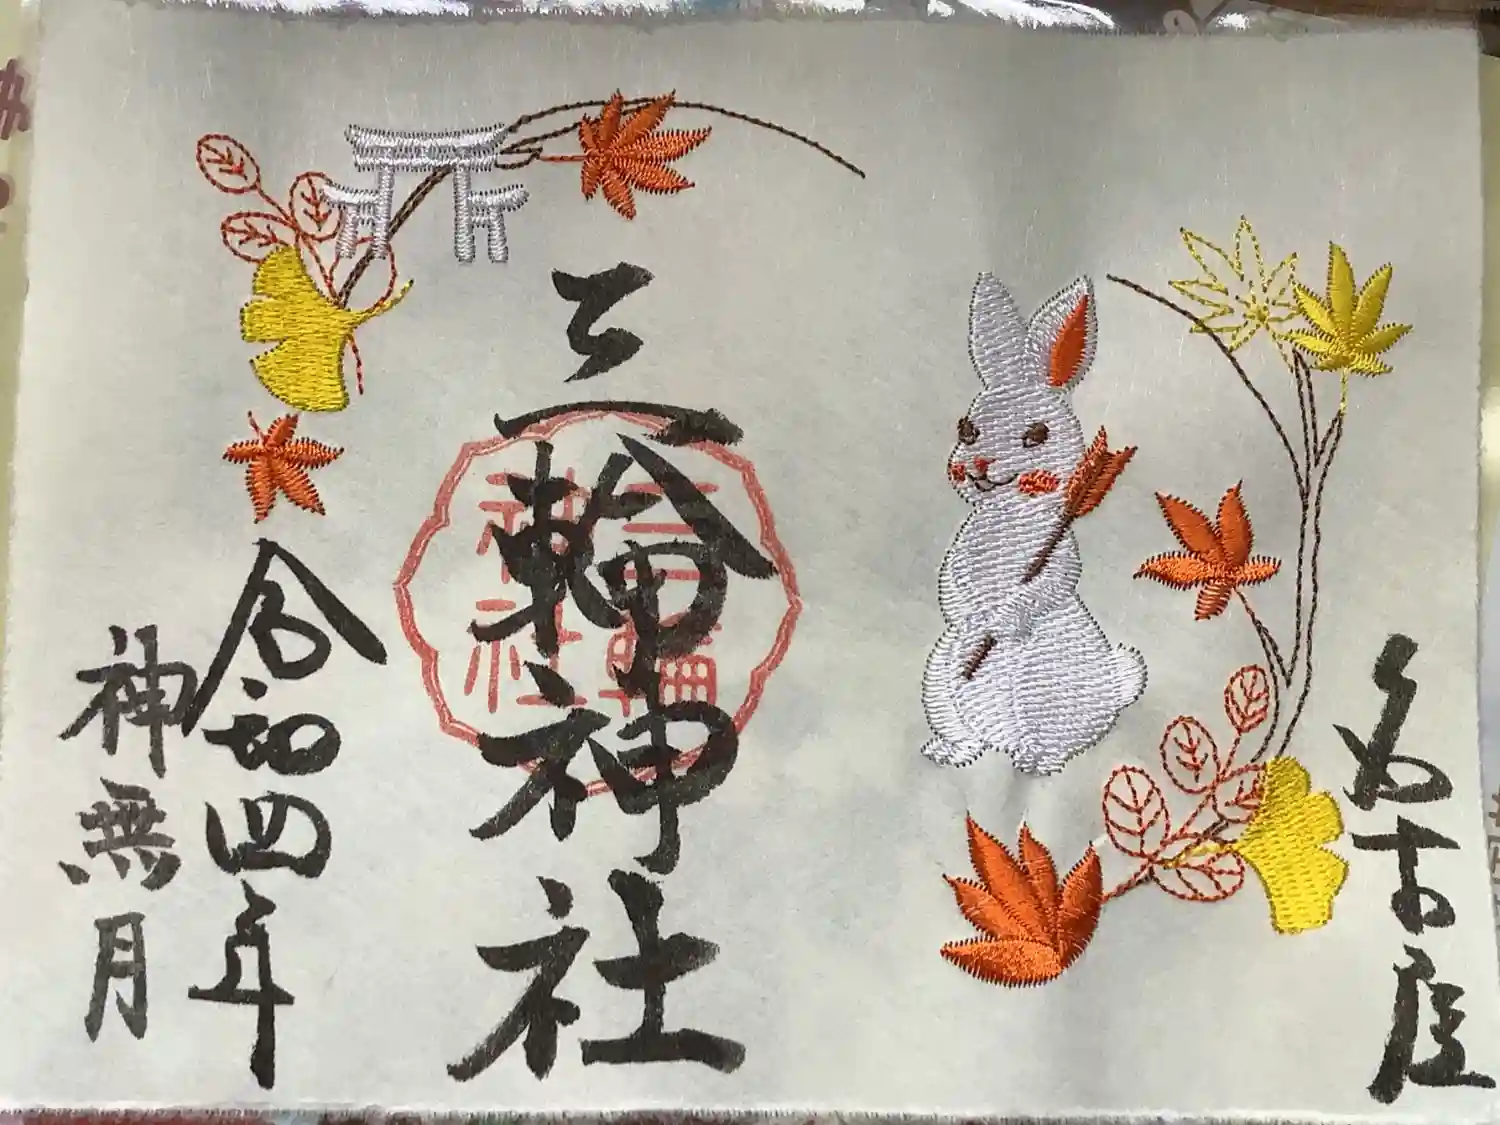 名古屋
三輪神社
三輪
神社
令和四年
神無月